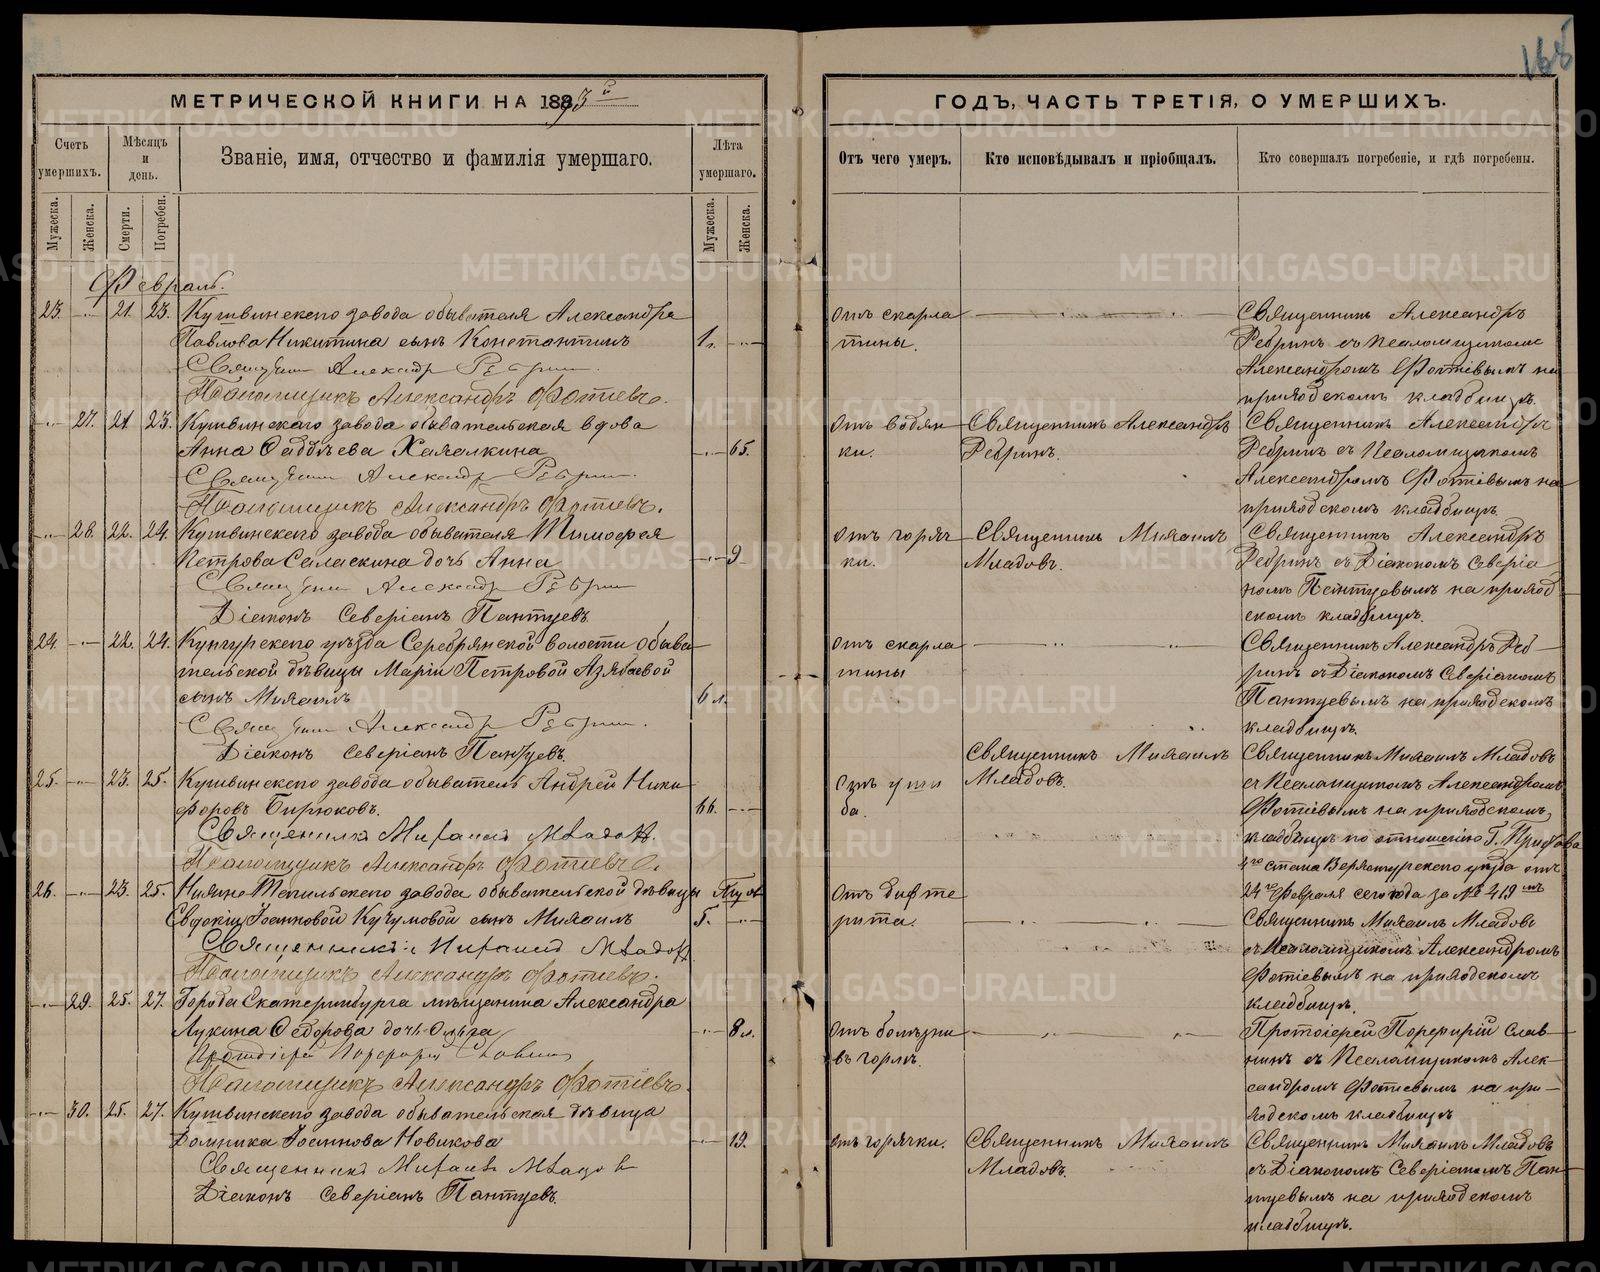 168
МЕТРИЧЕСКОЙ КНИГИ НА 1893й
ГОДЪ, ЧАСТЬ ТРЕТІЯ, О УМЕРШИХЪ.
Счетъ умершихъ.
Мѣсяцъ и день.
Званіе, имя, отчество и фамилія умершаго.
Лѣта умершаго.
Отъ чего умеръ.
Кто исповѣдывалъ и пріобщалъ.
Кто совершалъ погребеніе, и гдѣ погребены.
Мужеска.
Женска.
Смерти.
Погребен.
Мужеска.
Женска.
Февраль.
23. 21. 23. Кушвинскаго завода обывателя Александра
Павлова Никитина сынъ Константинъ 1л.
Священникъ Александръ Ребринъ.
Псаломщикъ Александръ Фотіевъ.
отъ скарла
тины.
Священникъ Александръ
Ребринъ съ Псаломщикомъ
Александромъ Фотіевымъ на
приходскомъ кладбищѣ.
27. 21 23. Кушвинскаго завода обывательская вдова
Анна Фаддѣева Халялкина 65.
Священникъ Александръ Ребринъ.
Псаломщикъ Александръ Фотіевъ.
Отъ водян
ки.
Священникъ Александръ
Ребринъ.
Священникъ Александръ
Ребринъ съ Псаломщикомъ
Александромъ Фотіевымъ на
приходскомъ кладбищѣ.
28. 22. 24. Кушвинскаго завода обывателя Тимофея
Петрова Саласкина дочь Анна 9
Священникъ Александръ Ребринъ
Діаконъ Северіанъ Пантуевъ.
отъ горяч
ки.
Священникъ Михаилъ
Младовъ.
Священникъ Александръ
Ребринъ съ Діакономъ Северіа
номъ Пантуевымъ на приход
скомъ кладбищѣ.
24. 22. 24. Кунгурскаго уѣзда Серебрянской волости обыва
тельской дѣвицы Маріи Петровой
сынъ Михаилъ 6 л.
Священникъ Александръ Ребринъ.
Діаконъ Северіанъ Пантуевъ.
отъ скарла
тины
Священникъ Александръ Реб
ринъ съ Діакономъ Северіаномъ
Пантуевымъ на приходскомъ
кладбищѣ.
25. 23. 25. Кушвинскаго завода обыватель Андрей Ники
форовъ Бирюковъ. 66.
Священникъ Михаилъ Младовъ.
Псаломщикъ Александръ Фотіевъ.
ба.
Священникъ Михаилъ
Младовъ.
Священникъ Михаилъ Младовъ
съ Псаломщикомъ Александромъ
Фотіевымъ на приходскомъ
кладбищѣ по отношенію Г. Пристава
4го стана Верхотурскаго уѣзда отъ
24го Февраля сего года за № 419мъ
26. 23. 25. Нижне Тагильскаго завода обывательской дѣвицы
Евдокіи Іоанновой Кучумовой сынъ Михаилъ 5.
Священникъ Михаилъ Младовъ
Псаломщикъ Александръ Фотіевъ.
Отъ дифте
рита.
Священникъ Михаилъ Младовъ
съ Псаломщикомъ Александромъ
Фотіевымъ на приходскомъ
кладбищѣ.
29. 25. 27. Города Екатеринбурга мѣщанина Александра
Лукина Федорова дочь Ольга 8 л.
Протоіерей Порфирій Славнинъ
Псаломщикъ Александръ Фотіевъ.
Отъ болѣзни
въ горлѣ.
Протоіерей Порфирій Слав
нинъ съ Псаломщикомъ Алек
сандромъ Фотіевымъ на при
ходскомъ кладбищѣ
30. 25. 27. Кушвинскаго завода обывательская дѣвица
Домника Іоаннова Новикова 19.
Священникъ Михаилъ Младовъ
Діаконъ Северіанъ Пантуевъ.
отъ горячки.
Священникъ Михаилъ
Младовъ.
Священникъ Михаилъ Младовъ
съ Діакономъ Северіаномъ Пан
туевымъ на приходскомъ
кладбищѣ.
METRIKI.GASO-URAL.RU